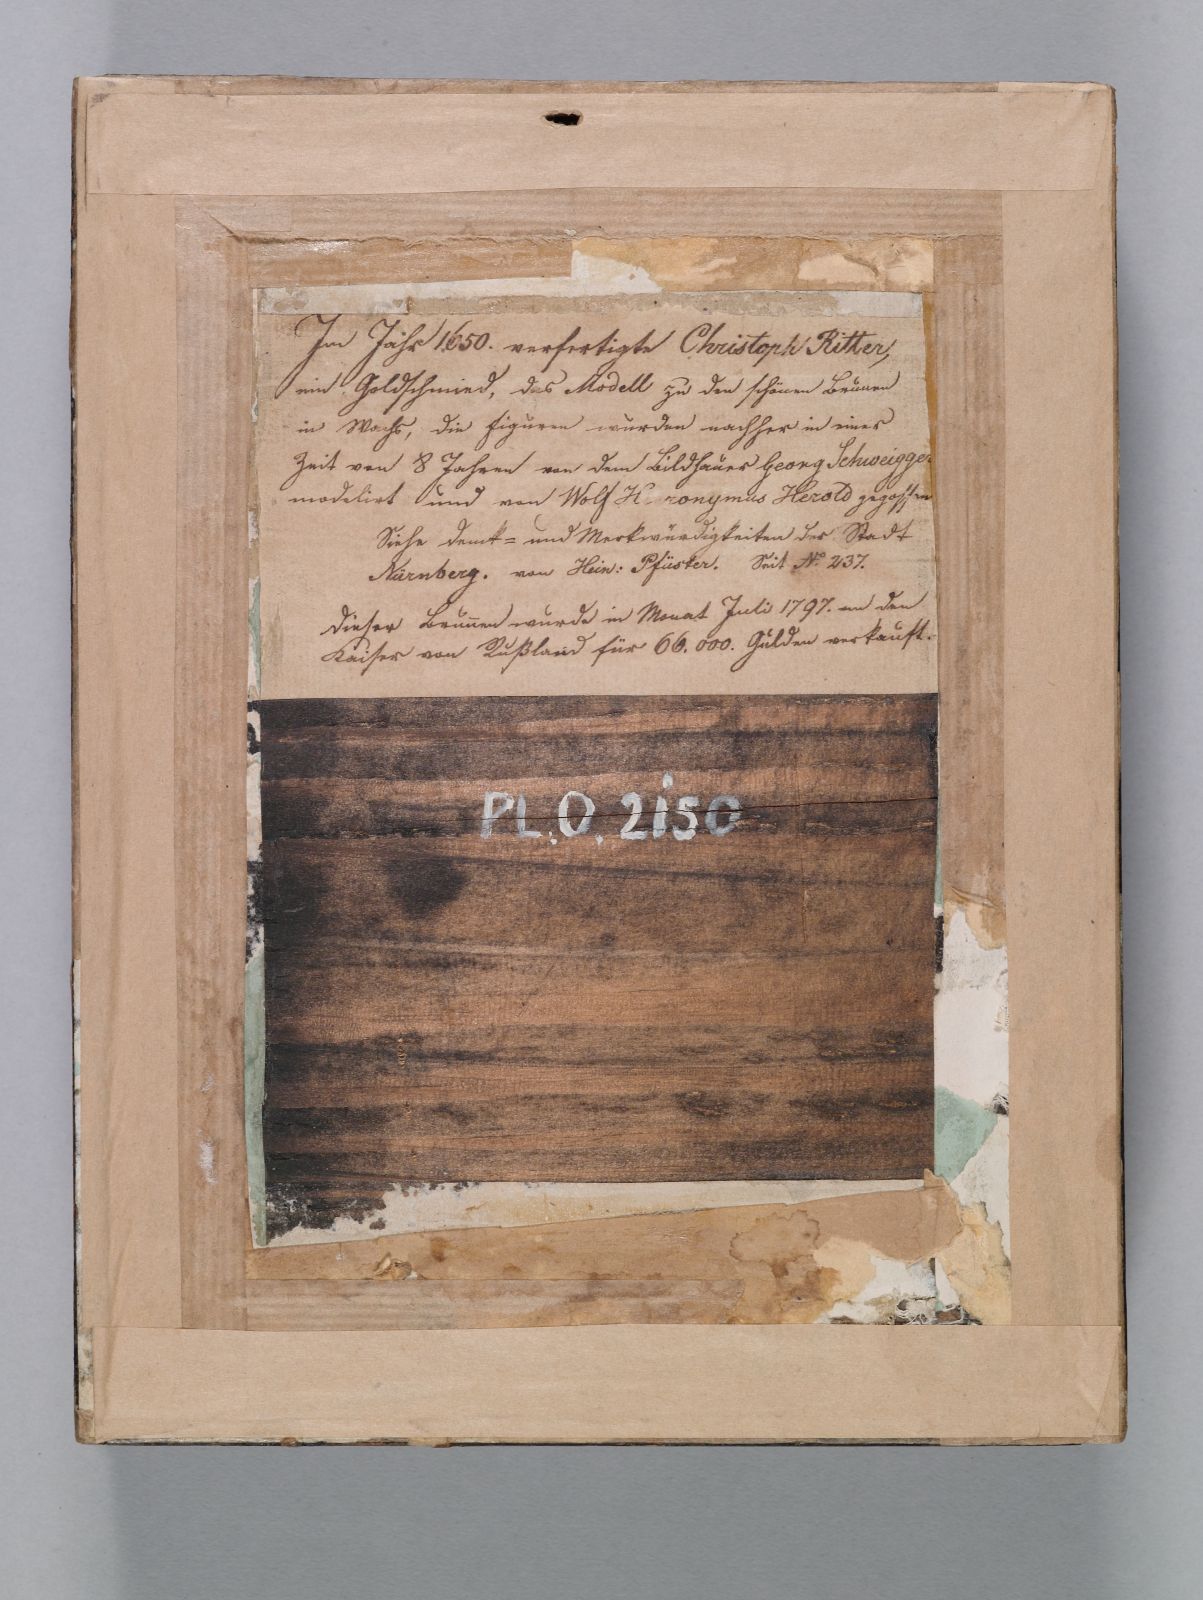 Im Jahr 1650. verfertigte Christoph Ritter,
ein Goldschmied, das Modell zu den schönen Brunen
in Wachs, die Figuren wurden nachher in einer
Zeit von 8 Jahren von dem Bildhauer Georg Schweigger
modelirt und von Wolf H ronymus Herold gegossen
Siehe Denk= und Merkwürdigkeiten der Stadt
Nürnberg. von Hein: Pfüster. Seit No. 237.
Dieser Brunen wurde in Monat Juli 1797. an den
Kaiser von Rußland für 66.000. Gulden verkauft.
PL.O. 2150